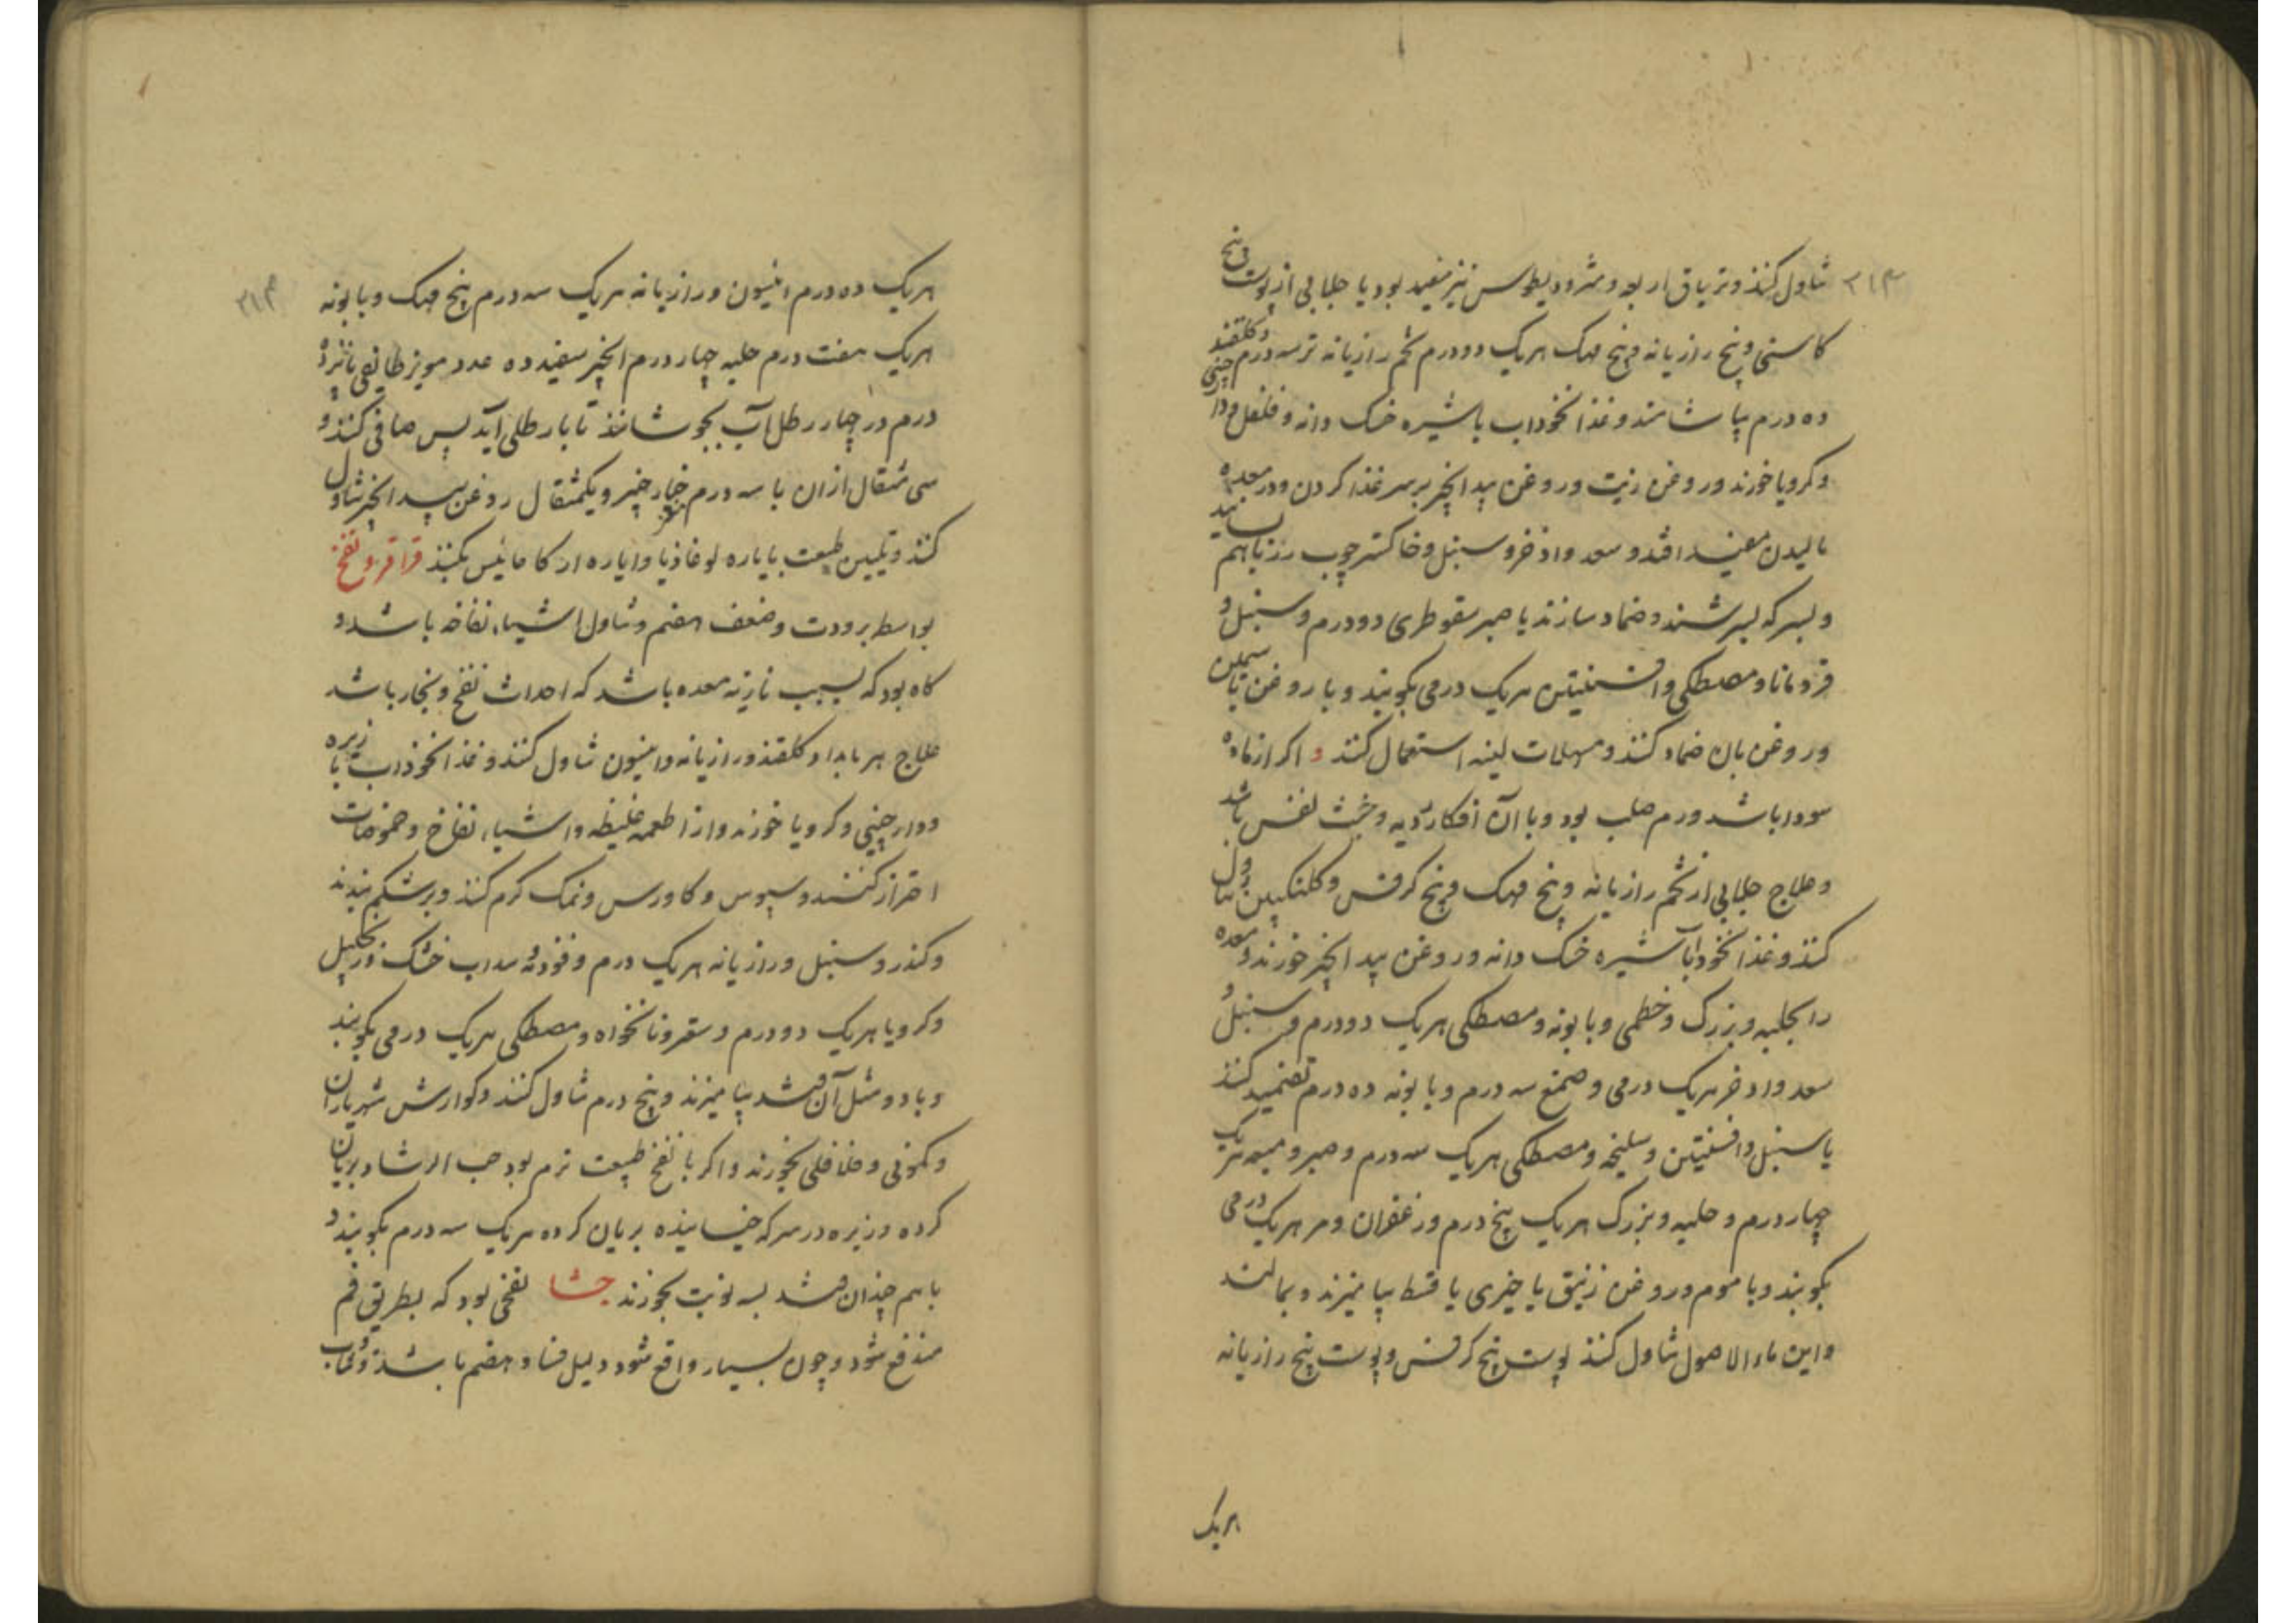 تناول کنند و تریاق اربعه و مثرودیطوس نیز مفید بود یا جلابی از پوست بیخ
کاسنی و بیخ رازیانه و بیخ مهک هریک دو درم تخم رازیانه تر سه درم و گلقند
ده درم بیاشامند و غذا نخوداب با شیره خسک دانه و فلفل و دارچینی
و کرویا خورند و روغن زیت و روغن بید انجیر بر سر غذا کردن و در معده
مالیدن مفید افتد و سعد و اذخر و سنبل و خاکستر چوب رز با هم بسایند
و بسرکه بسرشند و ضماد سازند یا صبر سقوطری دو درم و سنبل و
قردمانا و مصطکی و افسنتین هریک درمی بکوبند و با روغن یاسمین
و روغن بان ضماد کنند و مسهلات لینه استعمال کنند و اکر از ماده
سودا باشد ورم صلب بود و با آن افکار ردیه و خبث نفس باشد
و علاج جلابی از تخم رازیانه و بیخ مهک و بیخ کرفس و کلنکبین تناول
کنند و غذا نخوداب با شیره خسک دانه و روغن بید انجیر خورند و معده
را بحلبه و بزرک و خطمی و بابونه و مصطکی هریک دو درم و سنبل و
سعد و اذخر هریک درمی و صمغ سه درم و بابونه ده درم تضمید کنند
یا سنبل و افسنتین و سلیخه و مصطکی هریک سه درم و صبر و میعه هریک
چهار درم و حلبه و بزرک هریک پنج درم و زعفران و مر هریک درمی
بکوبند و با موم و روغن زنبق یا خیری یا قسط بیامیزند و بمالند
و این ماء الاصول تناول کنند پوست بیخ کرفس و پوست بیخ رازیانه
هریک
هریک ده درم انیسون و رازیانه هریک سه درم بیخ مهک و بابونه
هریک هفت درم حلبه چهار درم انجیر سفید ده عدد مویز طایفی پانزده
درم در چهار رطل آب بجوشانند تا با رطلی آید پس صافی کنند و
سی مثقال ازان با سه درم خیار چنبر و یکمثقال روغن بید انجیر تناول
کنند و تلیین طبیعت بایاره لوغاذیا و ایاره ارکاغانیس بکنند قراقر و نفخ
بواسطه برودت و ضعف هضم و تناول اشیاء نفاخه باشد و
کاه بود که بسبب نازله معده باشد که احداث نفخ و بخار باشد
علاج هر بامداد کلقند و رازیانه و انیسون تناول کنند و غذا نخوداب با زیره
و دارچینی و کرویا خورند و از اطعمه غلیظه و اشیاء نفاخ و حموضات
احتراز کنند و سبوس و کاورس و نمک کرم کنند و بر شکم بندند
و کندر و سنبل و رازیانه هریک درم و فودنه و سداب خشک و زنجبیل
و کرویا هریک دو درم و سعتر و نانخواه و مصطکی هریک درمی بکوبند
و با دو مثل آن قند بیامیزند و پنج درم تناول کنند و کوارش شهریاران
و کمونی و فلافلی بخورند و اکر با نفخ طبیعت نرم بود حب الرشاد بریان
کرده و زیره در سرکه خیسانیده بریان کرده هریک سه درم بکوبند و
با هم چندان قند بسه نوبت بخورند جشا نفخی بود که بطریق فم
مندفع شود و چون بسیار واقع شود دلیل فساد هضم باشد